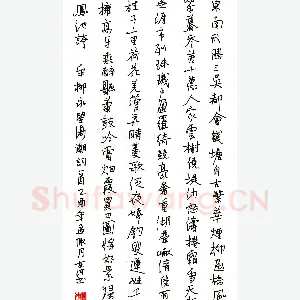 東南形勝三吳都會錢塘自古繁華煙柳畫橋風
簾翠幕參差十萬人家雲樹繞堤沙怒濤捲霜雪天
無涯市列珠璣戶盈羅綺競豪奢重湖疊巘清佳有
桂子十里荷花羌管弄晴菱歌泛夜嬉嬉釣叟蓮娃
擁高牙乘醉聽簫鼓吟賞煙霞異日圖將好景歸
鳳池誇 宋柳永望海潮詞 乙酉年 月
Shufawang.CN